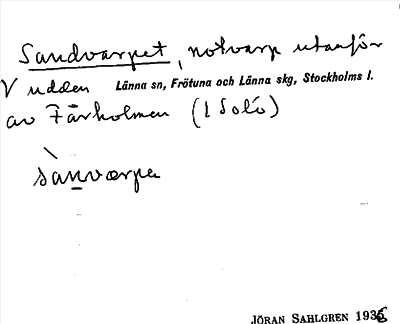 Sandvarpet, notvarp utanför
V udden Länna sn, Frötuna och Länna skg, Stockholms l.
av Fårholmen (1 Solö)
sànvarpe
JÖRAN SAHLGREN 1936